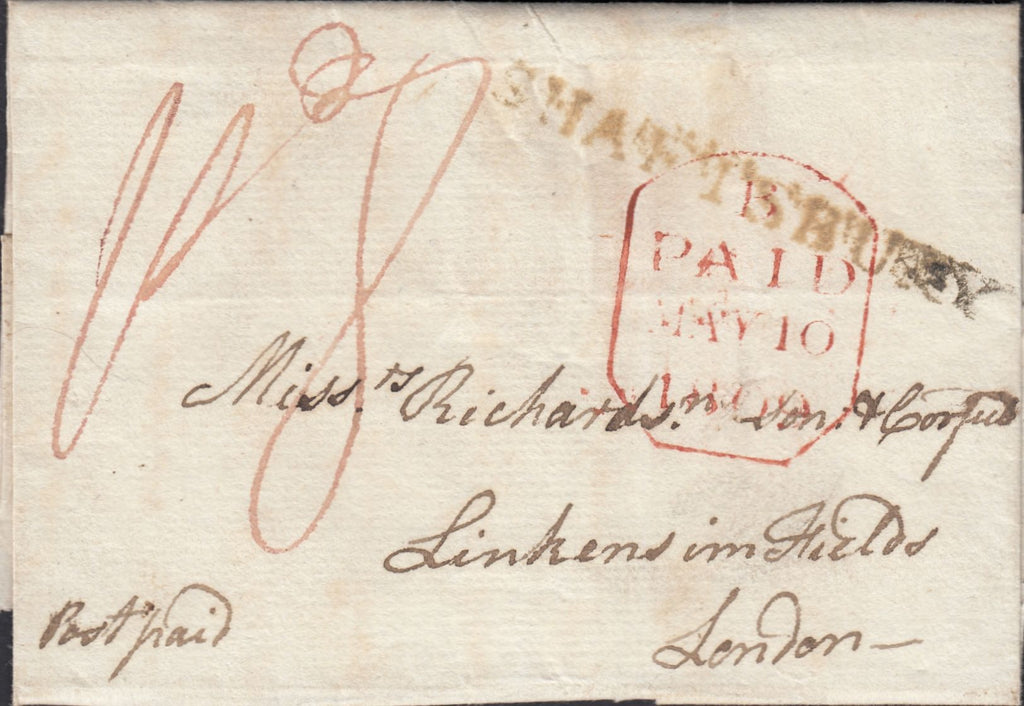 SHAFTSBURY
B
PAID
MAY 10
1809
Miss.rs Richards.n Son: &
Linkens im Fields
London
Post paid